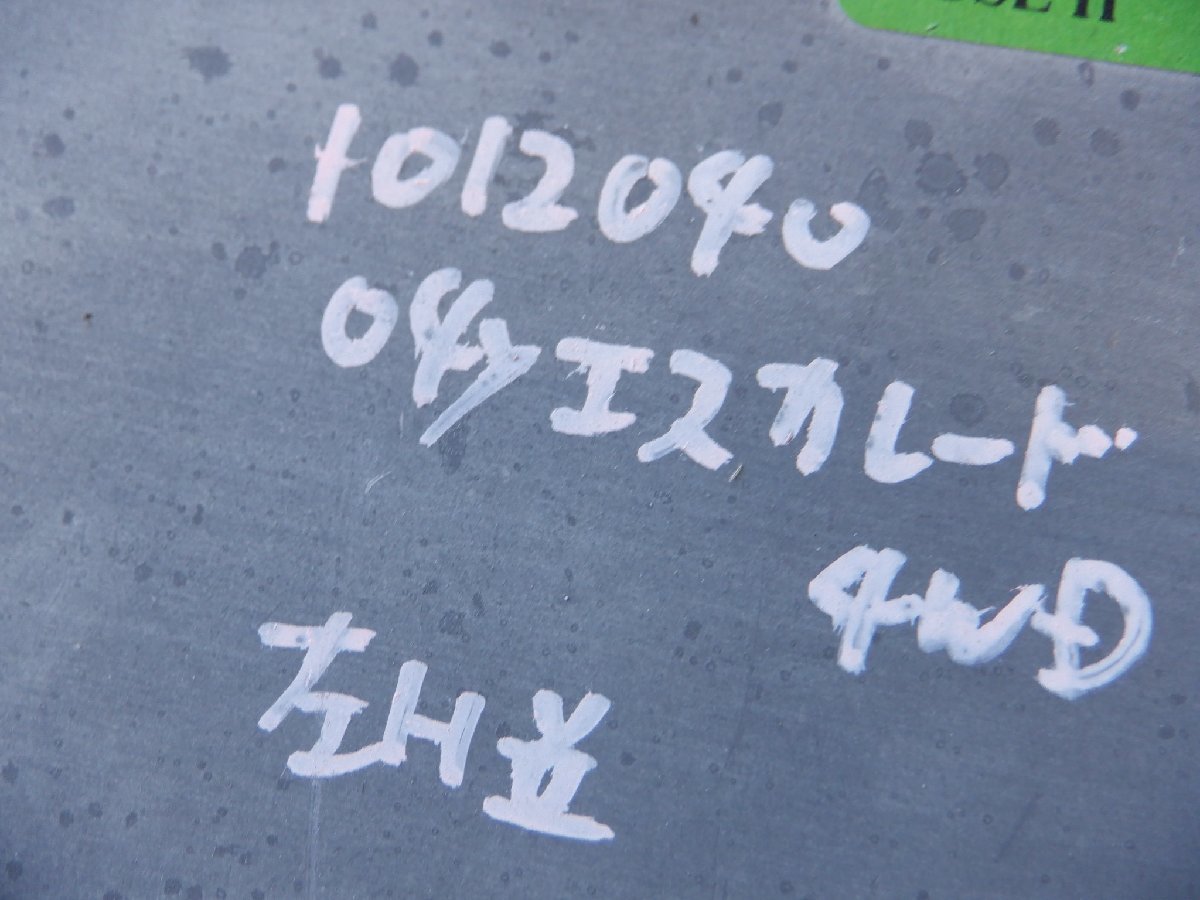 1012040
04yエスカレード
4WD